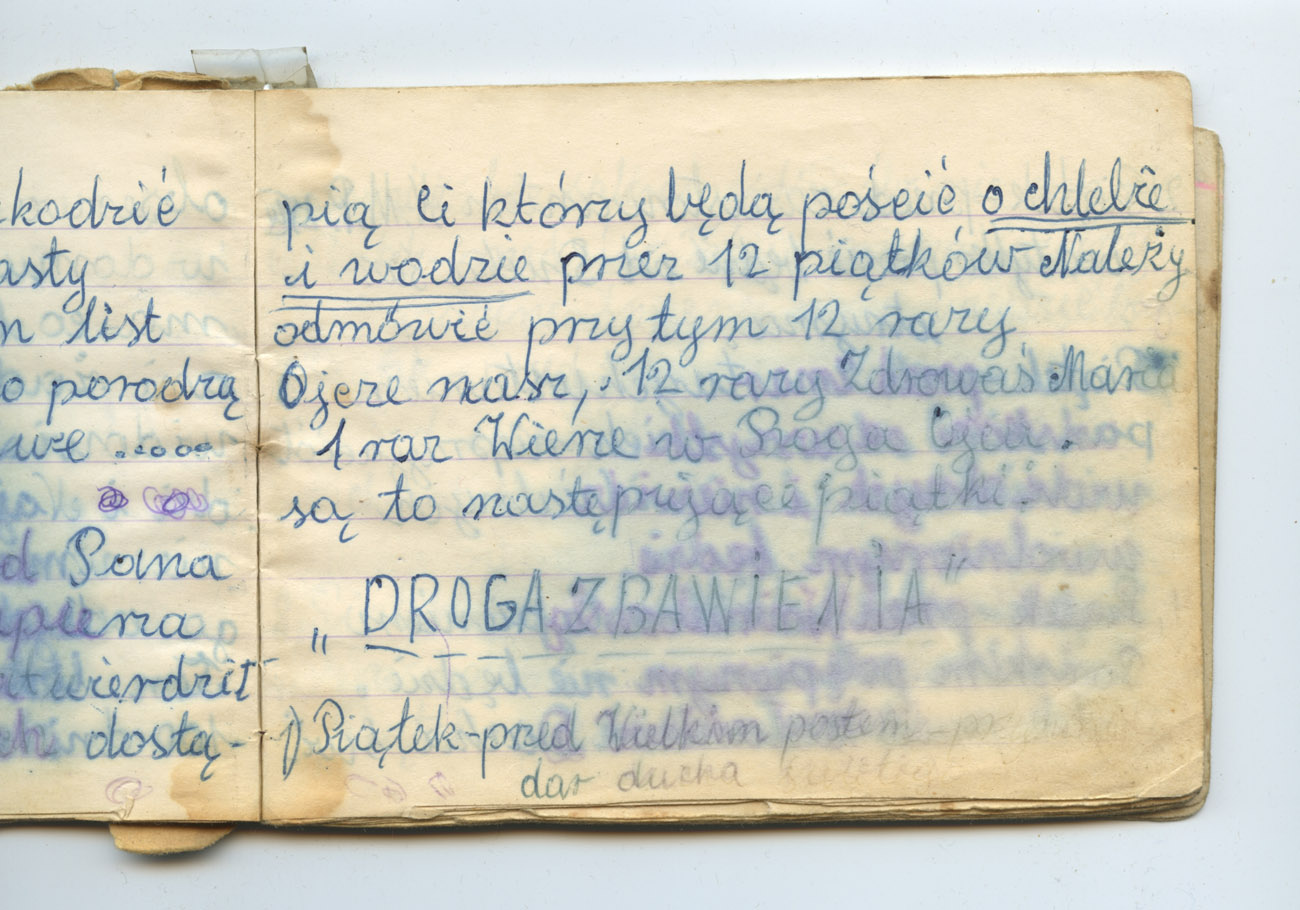 kodzić
asty
list
o porodzą
we .....
d Pana
twierdzil
dostą-
pią Ci którzy będą pościć o chlebie
i wodzie przez 12 piątków Należy
odmówić przy tym 12 razy
Ojcze nasz, 12 razy Zdrowaś Maria
1 raz Wierze w Boga Ojca.
są to następujące piątki.
„DROGA ZBAWIENIA"
1) Piątek-przed Wielkim postem-
dar ducha